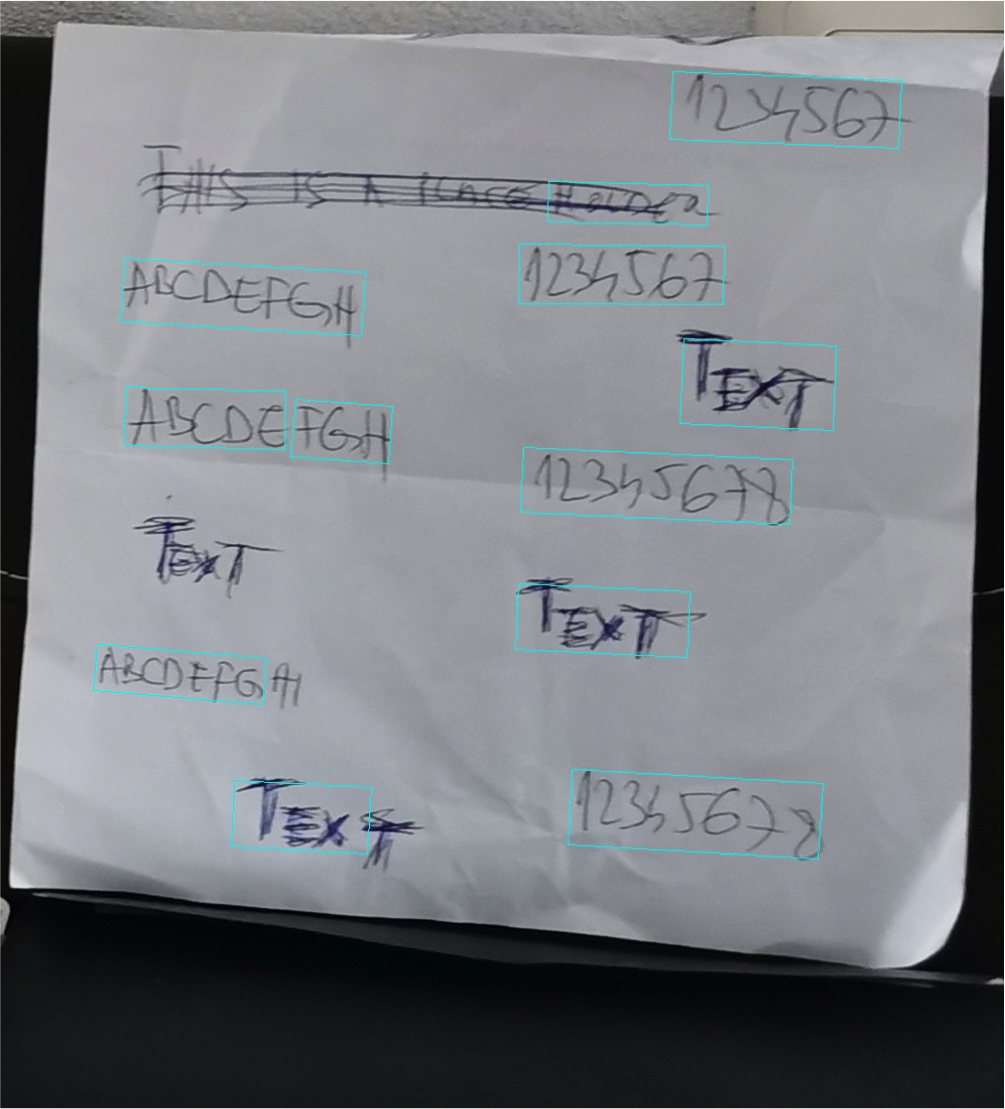 1234567
THIS IS A PLACE HOLDER
ABCDEFGH
1234567
TEXT
ABCDEFGH
12345678
TEXT
TEXT
ABCDEFGH
TEXT
12345678